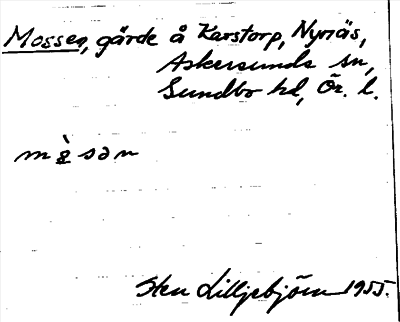 Mossen, gärde å Karstorp, Nyrnäs,
Askersunds sn,
Sundbo hd, Ör. l.
Sten Lilljebjörn 1955.